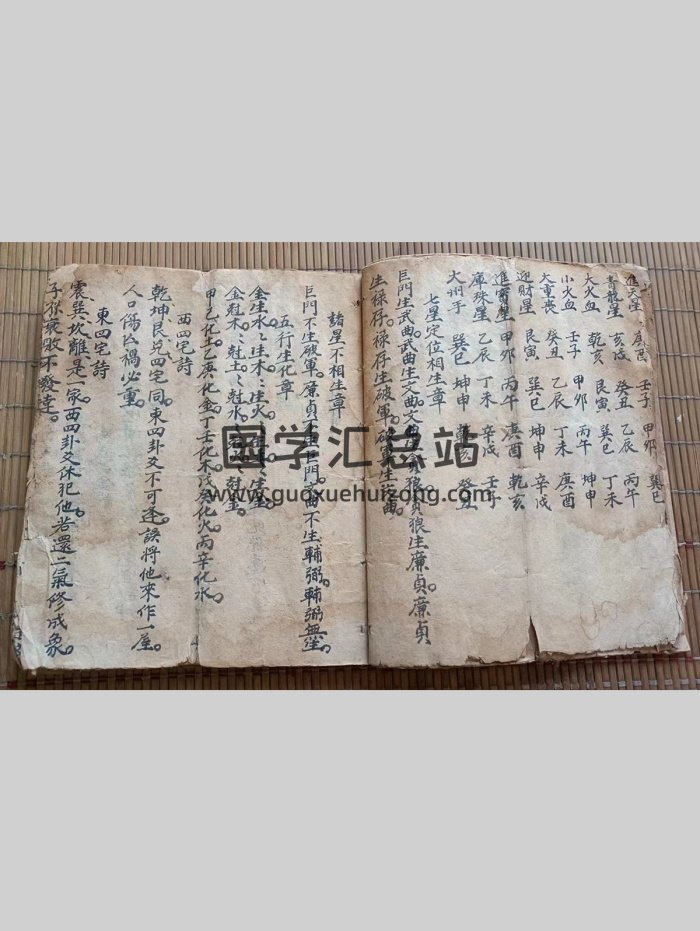 星 庚酉 壬子 甲卯 巽巳
青龍星 癸丑 乙辰 丙午
大火血 乾亥 艮寅 巽巳 丁未
小火血 壬子 甲卯 丙午 坤申
大重喪 癸丑 乙辰 丁未 庚酉
迎財星 艮寅 巽巳 坤申 辛戌
進寶星 甲卯 丙午 庚酉 乾亥
庫珠星 乙辰 丁未 辛戌 壬子
大州手 巽巳 坤申 乾亥 癸丑
七星定位相生章
巨門生武曲。武曲生文曲。文曲生貪狼。貪狼生廉貞。廉貞
生祿存。祿存生破軍。破軍生曲。
諸星不相生章
巨門不生破軍。廉貞不生巨門。文曲不生輔弼。輔弼無
五行生化章
金生水。水生木。木生火。火生土。土生金。
金尅木。木尅土。土尅水。水尅火。火尅金。
甲己化土。乙庚化金。丁壬化木。戊癸化火。丙辛化水。
西四宅詩
乾坤艮兌四宅同。東四卦爻不可逢。誤將他來作一屋。
人口傷亡禍必重。
東四宅詩
震巽坎離是一家。西四卦爻休犯他。若還二氣修成象。
子孫衰敗不發達。
国学汇总站
www.guoxuehuizong.com